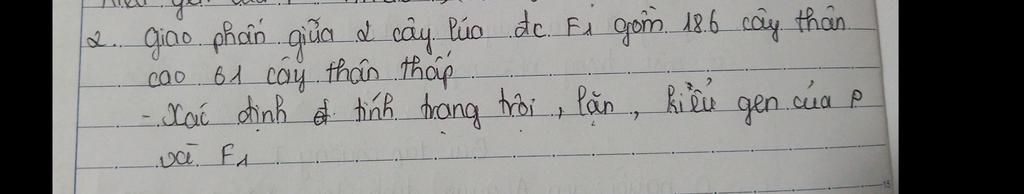 2. giao phấn giữa 2 cây lúa đc F1 gồm 186 cây thân
cao 61 cây thân thấp
- Xác định tính trạng trội, lặn, kiểu gen của P
và F1